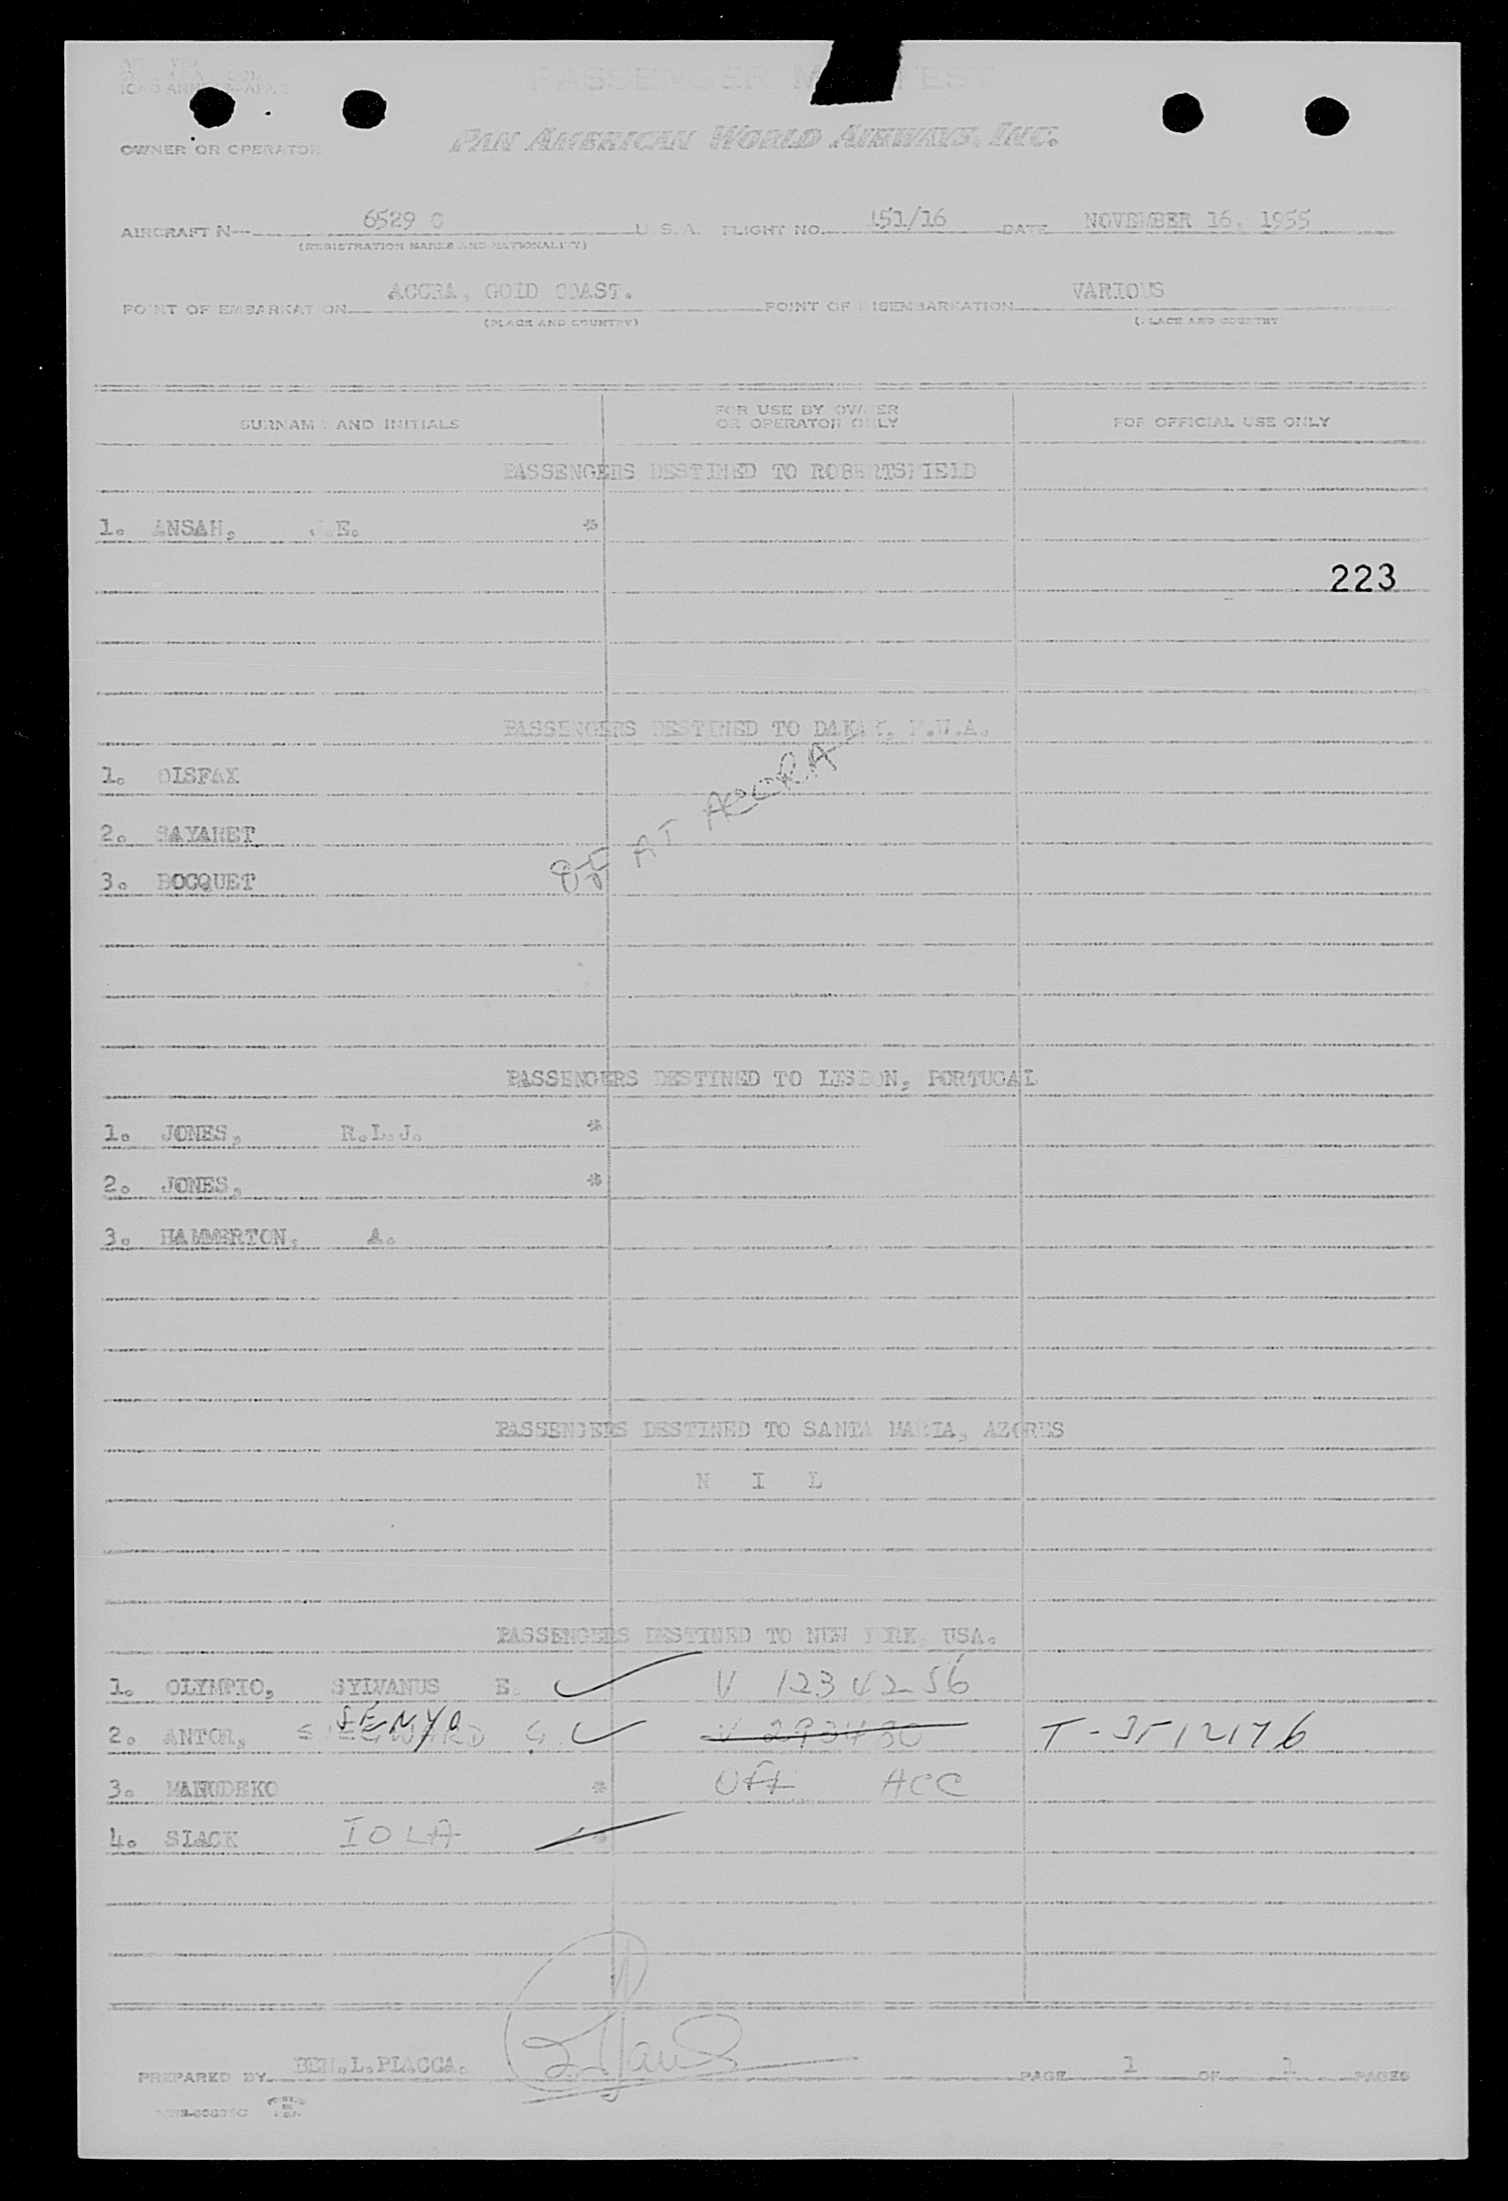 PASSENGER M   FEST
OWNER OR OPERATOR PAN AMERICAN WORLD AIRWAYS, INC.
AIRCRAFT N— 6529 C U. S. A. FLIGHT NO. 151/16 DATE NOVEMBER 16, 1955
(REGISTRATION MARKS AND NATIONALITY)
POINT OF EMBARKATION ACCRA, GOLD COAST. POINT OF DISEMBARKATION VARIOUS
(PLACE AND COUNTRY) (PLACE AND COUNTRY
SURNAME AND INITIALS FOR USE BY OWNER OR OPERATOR ONLY FOR OFFICIAL USE ONLY
PASSENGERS DESTINED TO ROBERTSFIELD
1. ANSAH, E. *
223
PASSENGERS DESTINED TO DAKAR, F.W.A.
1. DISFAX
2. SAYARET
3. BOCQUET
AT ACCRA
PASSENGERS DESTINED TO LISBON, PORTUGAL
1. JONES, R.L.J. *
2. JONES, *
3. HAMMERTON, A.
PASSENGERS DESTINED TO SANTA MARIA, AZORES
N I L
PASSENGERS DESTINED TO NEW YORK, USA.
1. OLYMPIO, SYLVANUS E. ✓ V 1234256
2. ANTOR, SENYO G ✓ V 293430 T-3512176
3. MANUDEKO * Off ACC
4. SLACK IOLA *
PREPARED BY BEN.L.PLACCA. PAGE 1 OF 1 PAGES